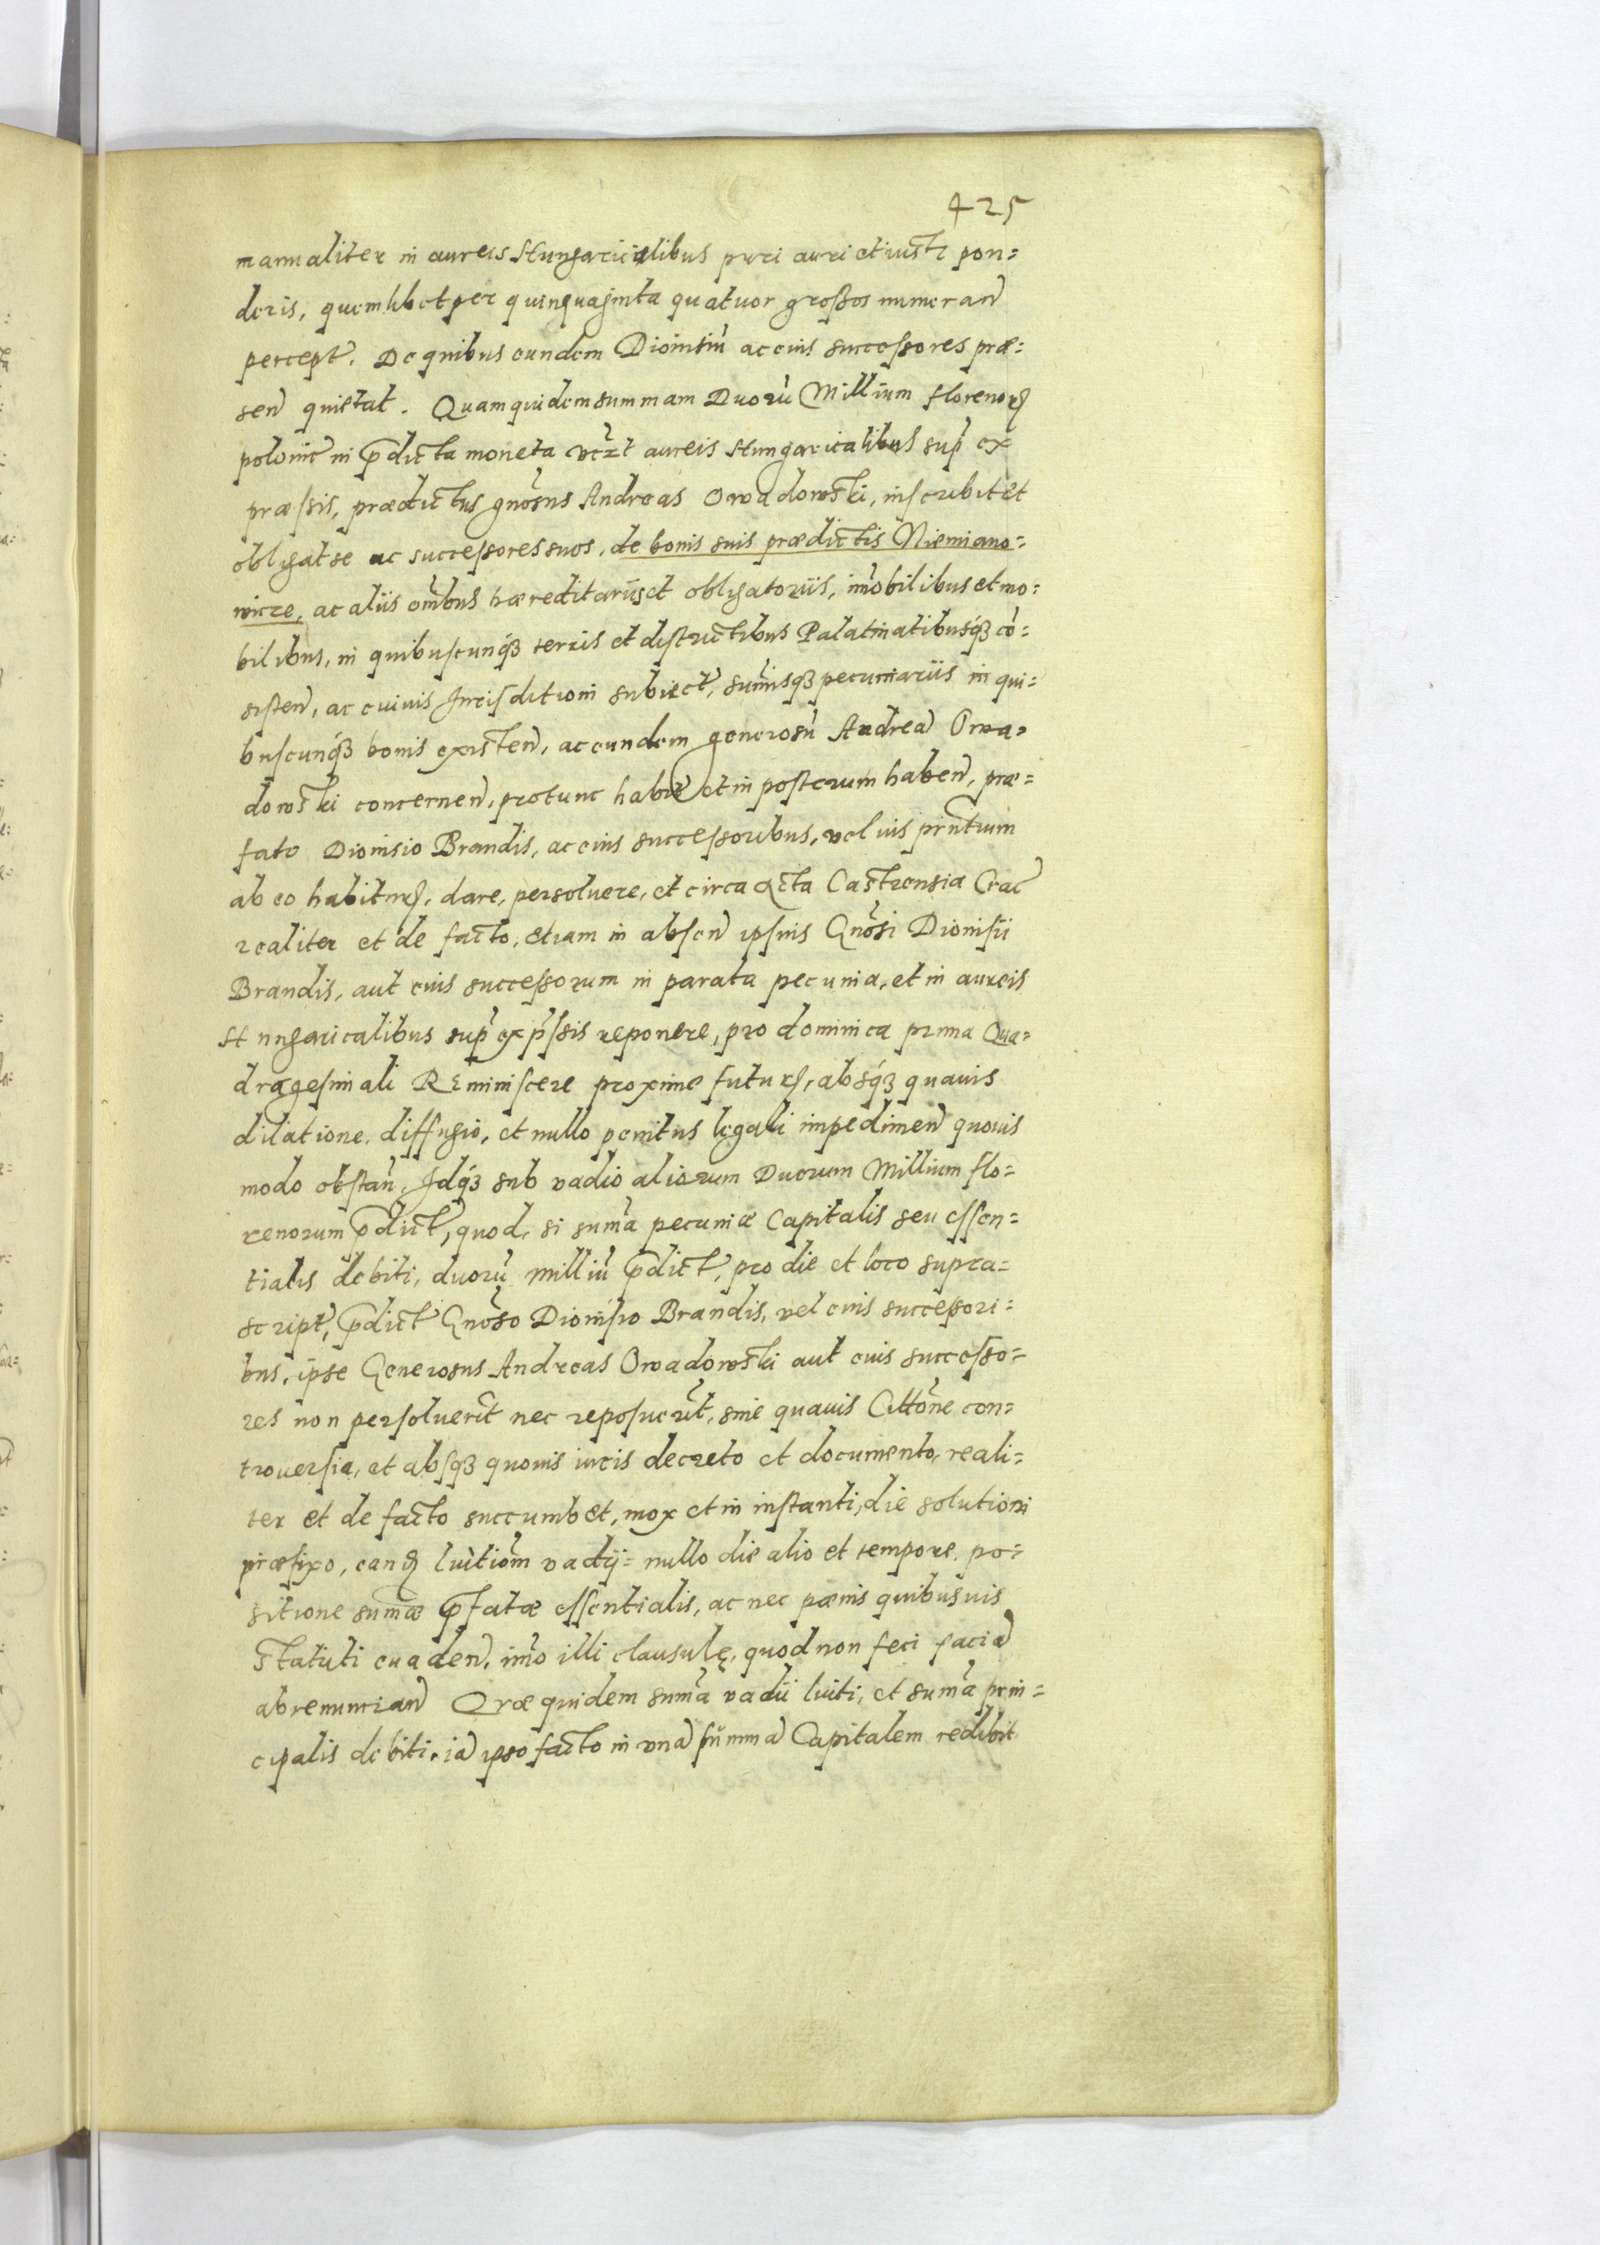 425
manualiter in aureis Hungaricalibus puri auri et iusti pon=
deris, quemlibet per quinquaginta quatuor grossos numeran̄
percept̄. De quibus eundem Dionisiū ac eius successores præ=
sen̄ quietat. Quam quidem summam Duorū Millium florenorꝝ
polonic̄ in p̄dicta moneta vcz̄t aureis Hungaricalibus sup̄ ex
præssis, prædictus gn̄osus Andreas Owadowski, inscribit et
obligat se ac successores suos, de bonis suis prædictis Niemiano=
wicze, ac aliis om̄bus hæreditariis et obligatoriis, im̄obilibus et mo=
bilibus, in quibuscunqꝫ terris et districtibus Palatinatibusqꝫ cō=
sisten̄, ac cuiuis Jurisditioni subiect̄, sum̄isqꝫ pecuniariis in qui=
buscunqꝫ bonis existen̄, ac eundem generosū Andreā Owa=
dowski concernen̄, protunc habit̄ et in posterum haben̄, præ=
fato Dionisio Brandis, ac eius successoribus, vel ius prn̄tium
ab eo habiturꝝ, dare, persoluere, et circa acta Castrensia Crac̄
realiter et de facto, etiam in absen̄ ipsius Gn̄osi Dionisii
Brandis, aut eius successorum in parata pecunia, et in aureis
Hungaricalibus sup̄ exp̄ssis reponere, pro dominica prima Qua=
dragesimali Reminiscere proxime futurꝝ, absqꝫ quauis
dilatione, diffugio, et nullo penitus legali impedimen̄ quouis
modo obstan̄. Idqꝫ sub vadio aliorum Duorum Millium flo=
renorum p̄dict̄, quod, si sum̄a pecuniæ Capitalis seu essen=
tialis debiti, duorū milliū p̄dict̄, pro die et loco supra=
script̄, p̄dict̄ Gn̄oso Dionisio Brandis, vel eius successori=
bus, ipse Generosus Andreas Owadowski aut eius successo=
res non persoluerit nec reposuerit, sine quauis Citt̄one con=
trouersia, et absqꝫ quouis iuris decreto et documento, reali=
ter et de facto succumbet, mox et in instanti, die solutioni
præfixo, eanꝗ luitiōm vadij= nullo die alio et tempore, po=
sitione sum̄æ p̄fatæ essentialis, ac nec pænis quibusuis
statuti euaden̄, im̄o illi clausulę, quod non feci faciā
abrenuncian̄ Quæ quidem sum̄a vadii luiti, et sum̄a prin=
cipalis debiti, iā ipso facto in vnā summā Capitalem redibit